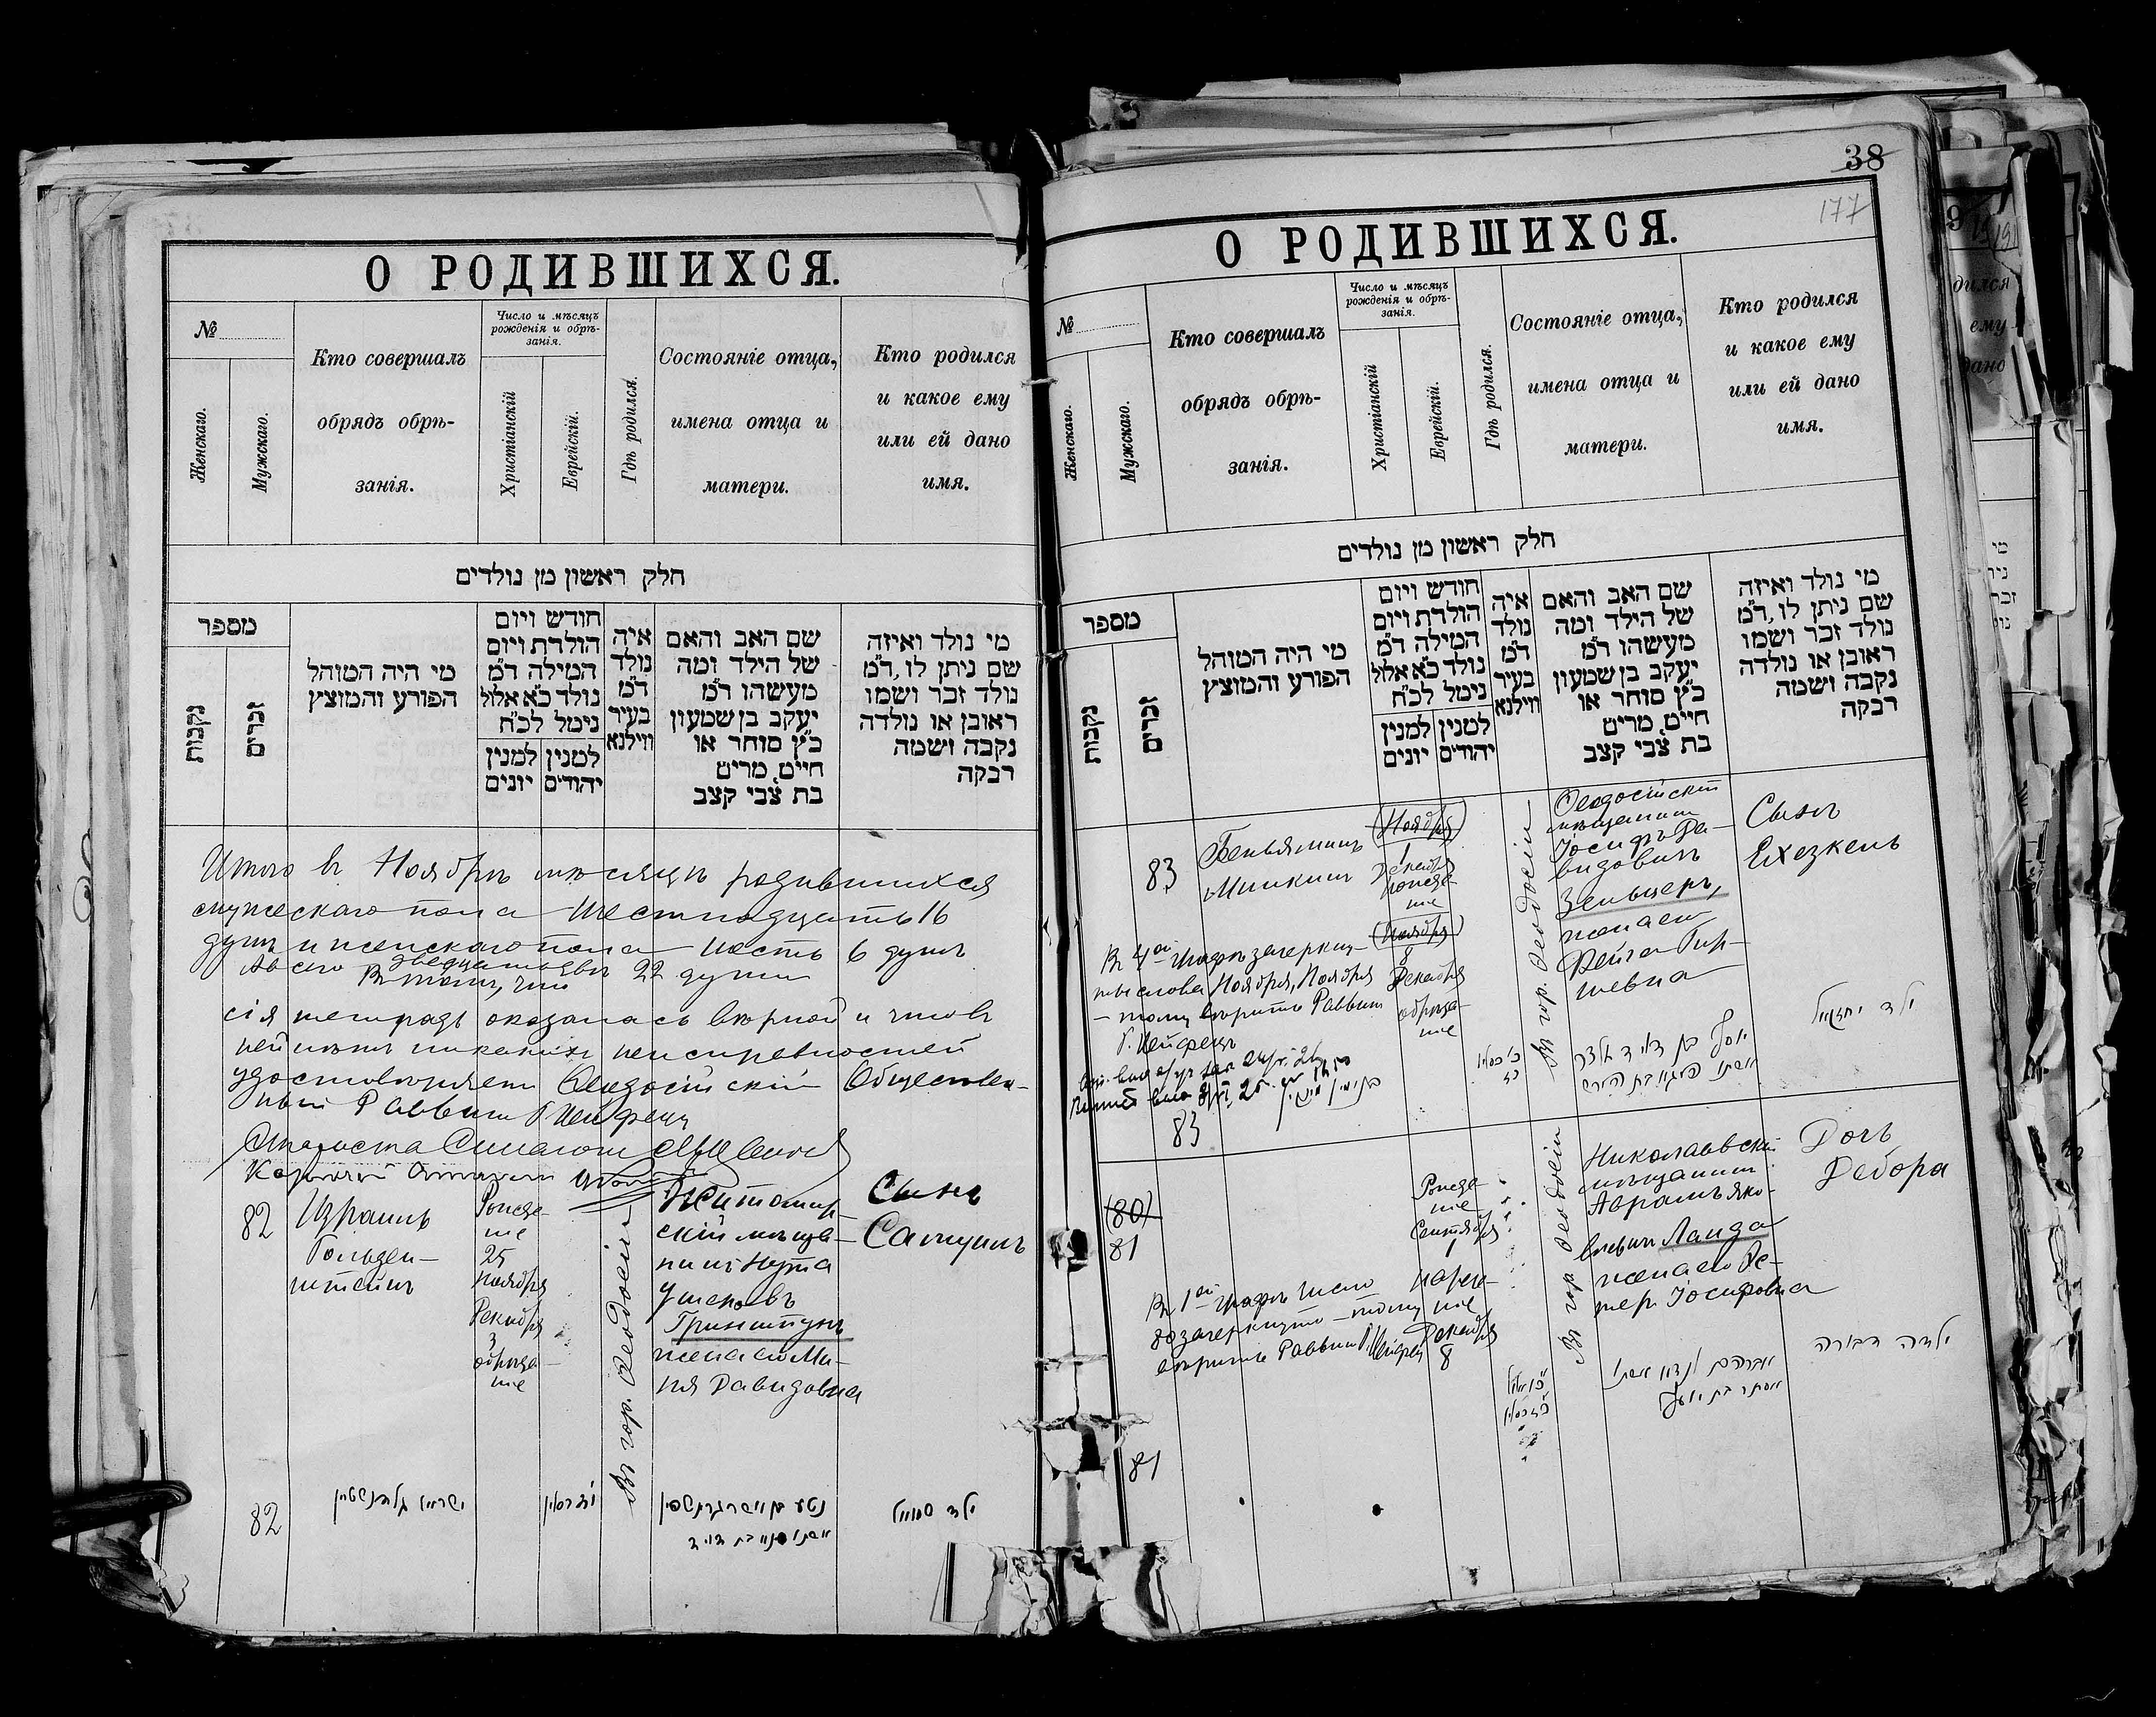 О РОДИВШИХСЯ.
№
Женскаго.
Мужскаго.
Кто совершалъ
обрядъ обрѣ-
занія.
Число и мѣсяцъ
рожденія и обрѣ-
занія.
Христіанскій
Еврейскій.
Гдѣ родился.
Состояніе отца,
имена отца и
матери.
Кто родился
и какое ему
или ей дано
имя.
חלק ראשון מן נולדים
מספר
נקבות
זכרים
מי היה המוהל
הפורע והמוצץ
חודש ויום
הולדת ויום
המילה ד״מ
נולד כ״א אלול
נימל לכ״ח
למנין למנין
יהודים יונים
איה
נולד
ד״מ
בעיר
ווילנא
שם האב והאם
של הילד ומה
מעשהו ד״מ
יעקב בן שמעון
כ״ץ סוחר או
חיים, מרים
בת צבי קצב
מי נולד ואיזה
שם ניתן לו, ד״מ
נולד זכר ושמו
ראובן או נולדה
נקבה ושמה
רבקה
Итого въ Ноябрѣ мѣсяцѣ родившихся
мужескаго пола Шестнадцать 16
душъ и женскаго пола шесть 6 душъ
А всего двадцать двѣ 22 души
Въ томъ, что
сія тетрадь оказалась вѣрной и что въ
ней нѣтъ никакихъ неисправностей
удостовѣряетъ Ѳеодосійскій Обществен-
ный Раввинъ
Староста Синагоги
82
Израиль
Гольден-
штейнъ
Рожде-
ніе
25
Ноября
Декабря
3
обрѣза-
ніе
Въ гор. Ѳеодосіи
Житомир-
скій мѣща-
нинъ Нута
Ушеровъ
Гринштунъ
жена его Ма-
ня Давидовна
Сынъ
Самуилъ
82
ישראל גלדנשטיין
ילד שמואל
38
177
О РОДИВШИХСЯ.
№
Женскаго.
Мужскаго.
Кто совершалъ
обрядъ обрѣ-
занія.
Число и мѣсяцъ
рожденія и обрѣ-
занія.
Христіанскій
Еврейскій.
Гдѣ родился.
Состояніе отца,
имена отца и
матери.
Кто родился
и какое ему
или ей дано
имя.
חלק ראשון מן נולדים
מספר
נקבות
זכרים
מי היה המוהל
הפורע והמוצץ
חודש ויום
הולדת ויום
המילה ד״מ
נולד כ״א אלול
נימל לכ״ח
למנין למנין
יהודים יונים
איה
נולד
ד״מ
בעיר
ווילנא
שם האב והאם
של הילד ומה
מעשהו ד״מ
יעקב בן שמעון
כ״ץ סוחר או
חיים, מרים
בת צבי קצב
מי נולד ואיזה
שם ניתן לו, ד״מ
נולד זכר ושמו
ראובן או נולדה
נקבה ושמה
רבקה
83
Беньяминъ
Минкинъ
(Ноября)
1
Декабря
рожде-
ніе
(Ноября)
8
Декабря
обрѣза-
ніе
Въ гор. Ѳеодосіи
Ѳеодосійскій
мѣщанинъ
Іосифъ Да-
видовичъ
Зельцеръ,
жена его
Фейга Гир-
шевна
Сынъ
Ехезкель
Въ 4ой графѣ зачеркну-
ты слова Ноября, Ноября
— тому вѣрить Раввинъ
בנימין מינקין
ילד יחזקאל
83
(80)
81
Рожде-
ніе
Сентября
1
нарече-
ніе
Декабря
8
Въ 1ой графѣ число
80 зачеркнуто — тому
вѣрить Раввинъ
Въ гор. Ѳеодосіи
Николаевскій
мѣщанинъ
Аврамъ Яко-
влевичъ Ланда
жена его Эс-
теръ Іосифовна
Дочь
Дебора
אברהם לנדא אשתו
אסתר בת יוסף
ילדה דבורה
81